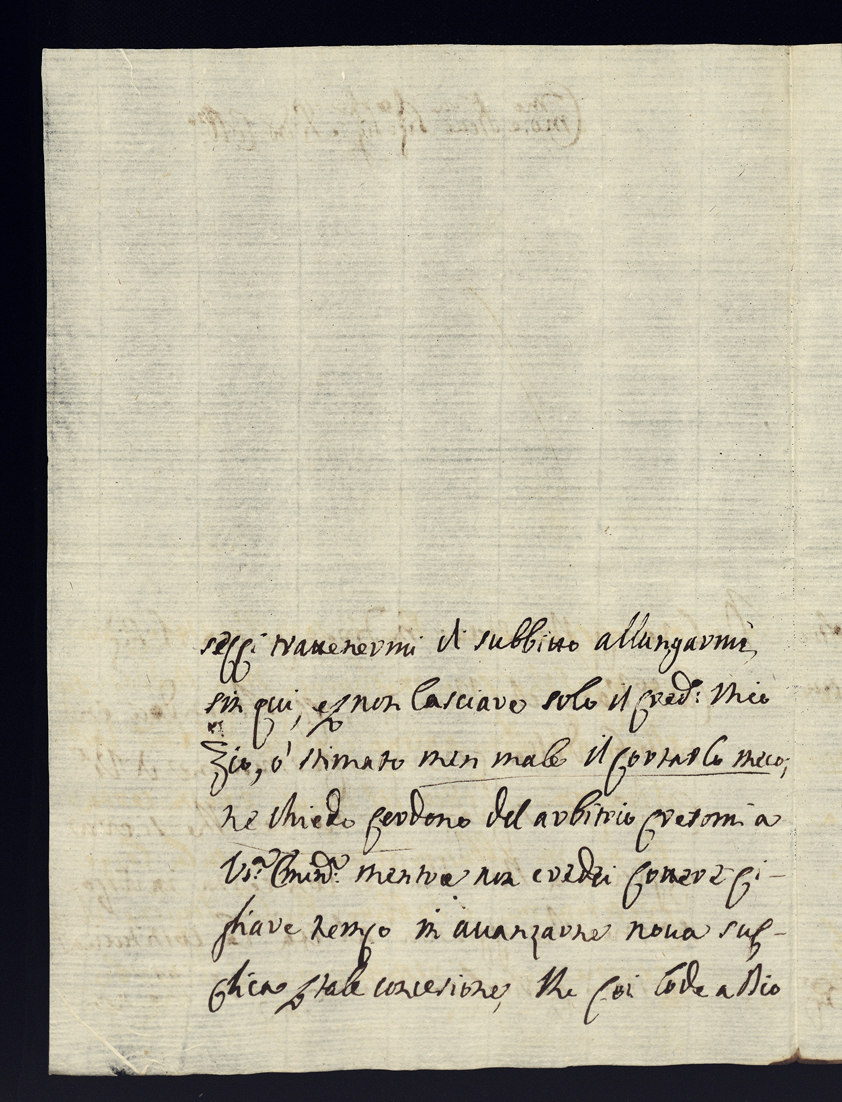 seppi trattenermi di subbitto allungarmi
sin qui, e p non lasciare solo il pred:º mio
Zio, ò stimato men male il portarlo meco,
ne chiedo perdono del arbitrio presomi a
V:ª Emin:ª mentre non credei potere pi-
gliare tempo in avanzarne nova sup-
plica p tale concesione, che poi lode a Dio